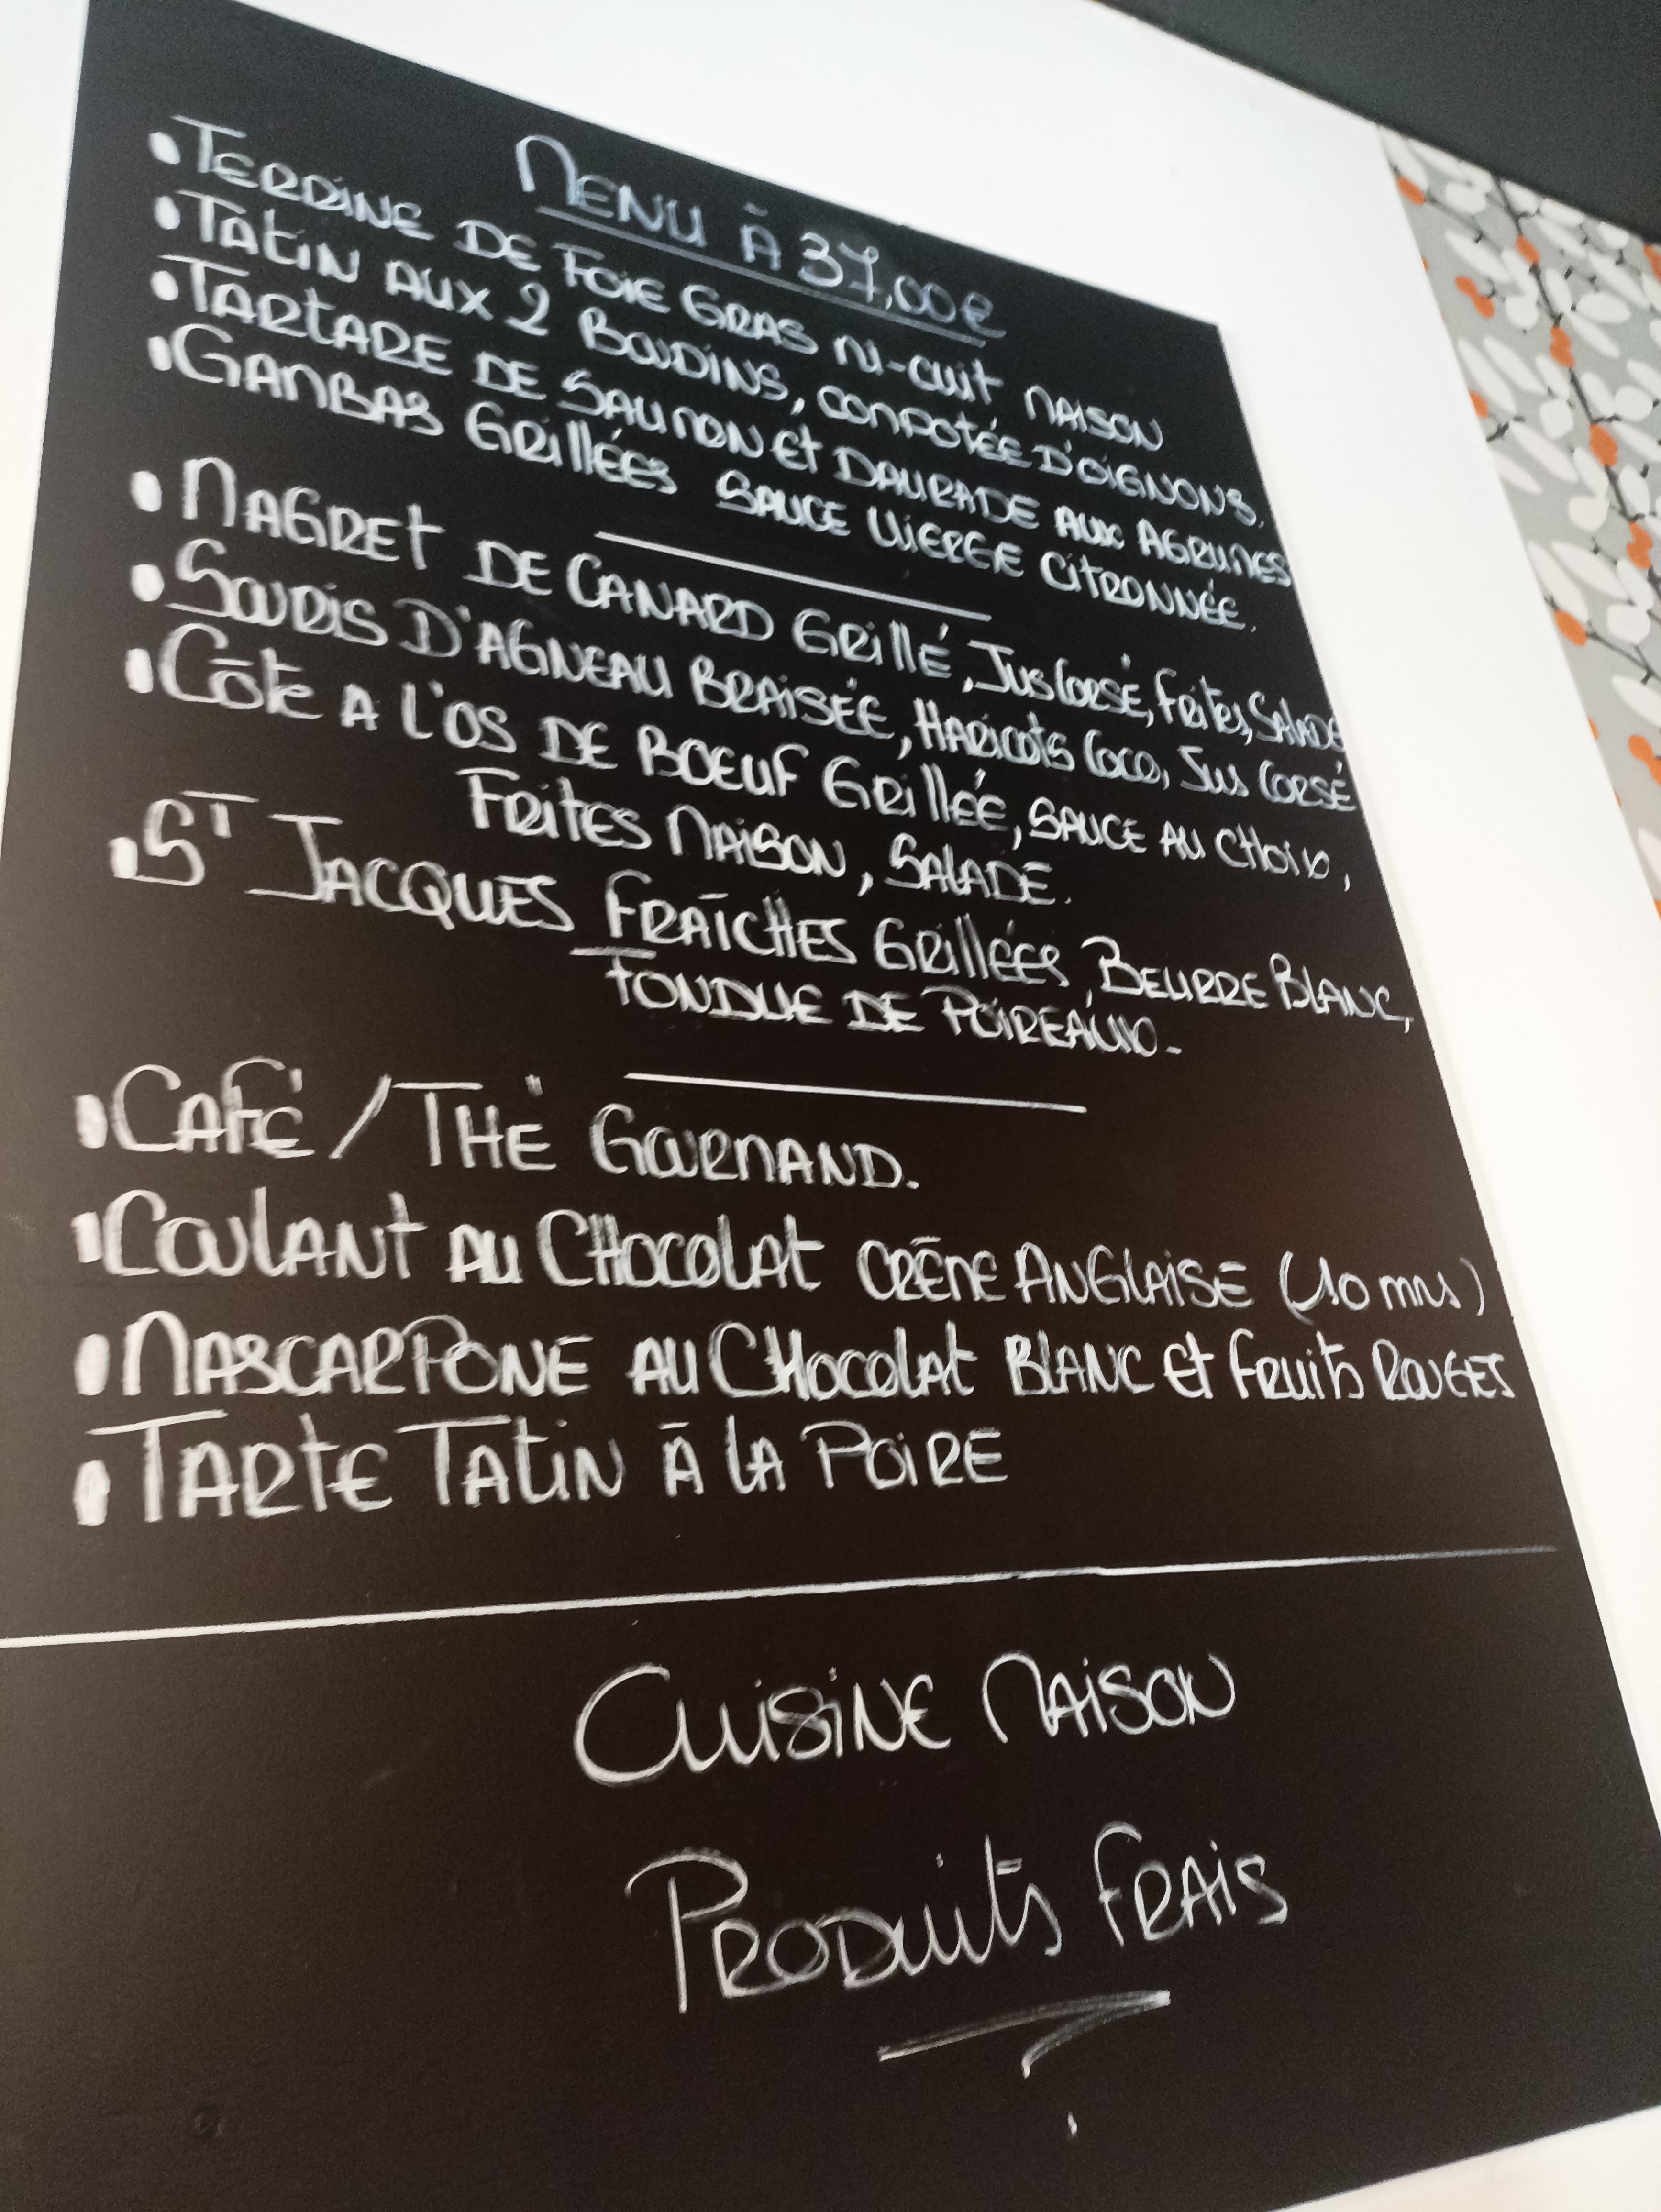 MENU À 37,00€
• TERRINE DE FOIE GRAS MI-CUIT MAISON
• TATIN AUX 2 BOUDINS, COMPOTÉE D'OIGNONS.
• TARTARE DE SAUMON ET DAURADE AUX AGRUMES
• GAMBAS GRILLÉES SAUCE VIERGE CITRONNÉE.
• MAGRET DE CANARD GRILLÉ, JUS CORSÉ, FRITES, SALADE
• SOURIS D'AGNEAU BRAISÉE, HARICOTS COCO, JUS CORSÉ
• CÔTE A L'OS DE BOEUF GRILLÉE, SAUCE AU CHOIX,
FRITES MAISON, SALADE.
• ST JACQUES FRAÎCHES GRILLÉES, BEURRE BLANC,
FONDUE DE POIREAUX.
• CAFÉ / THÉ GOURMAND.
• COULANT AU CHOCOLAT CRÈME ANGLAISE (10 mns)
• MASCARPONE AU CHOCOLAT BLANC ET FRUITS ROUGES
• TARTE TATIN À LA POIRE
CUISINE MAISON
PRODUITS FRAIS